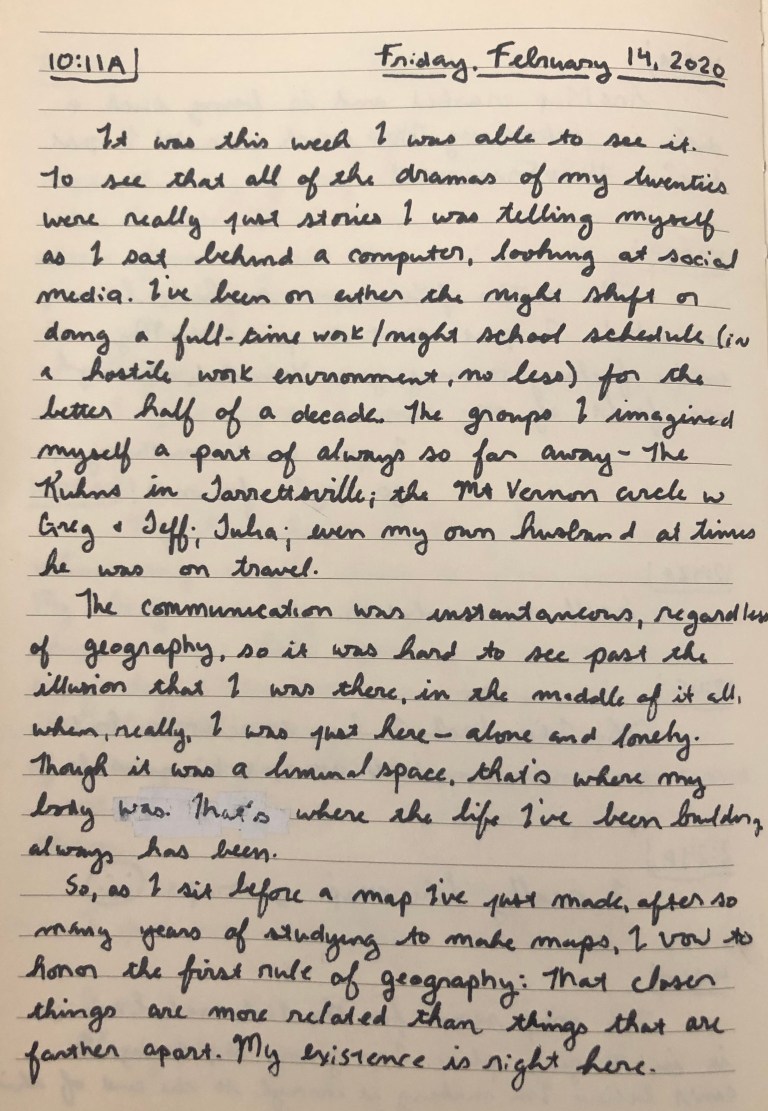 10:11A Friday, February 14, 2020
It was this week I was able to see it.
To see that all of the dramas of my twenties
were really just stories I was telling myself
as I sat behind a computer, looking at social
media. I've been on either the night shift or
doing a full-time work/night school schedule (in
a hostile work environment, no less) for the
better half of a decade. The groups I imagined
myself a part of always so far away - The
Kuhns in Jarrettsville; the Mt Vernon circle w
Greg & Jeff; Julia; even my own husband at times
he was on travel.
The communication was instantaneous, regardless
of geography, so it was hard to see past the
illusion that I was there, in the middle of it all,
when, really, I was just here - alone and lonely.
Though it was a liminal space, that's where my
body was. That's where the life I've been building
always has been.
So, as I sit before a map I've just made, after so
many years of studying to make maps, I vow to
honor the first rule of geography: That closer
things are more related than things that are
farther apart. My existence is right here.